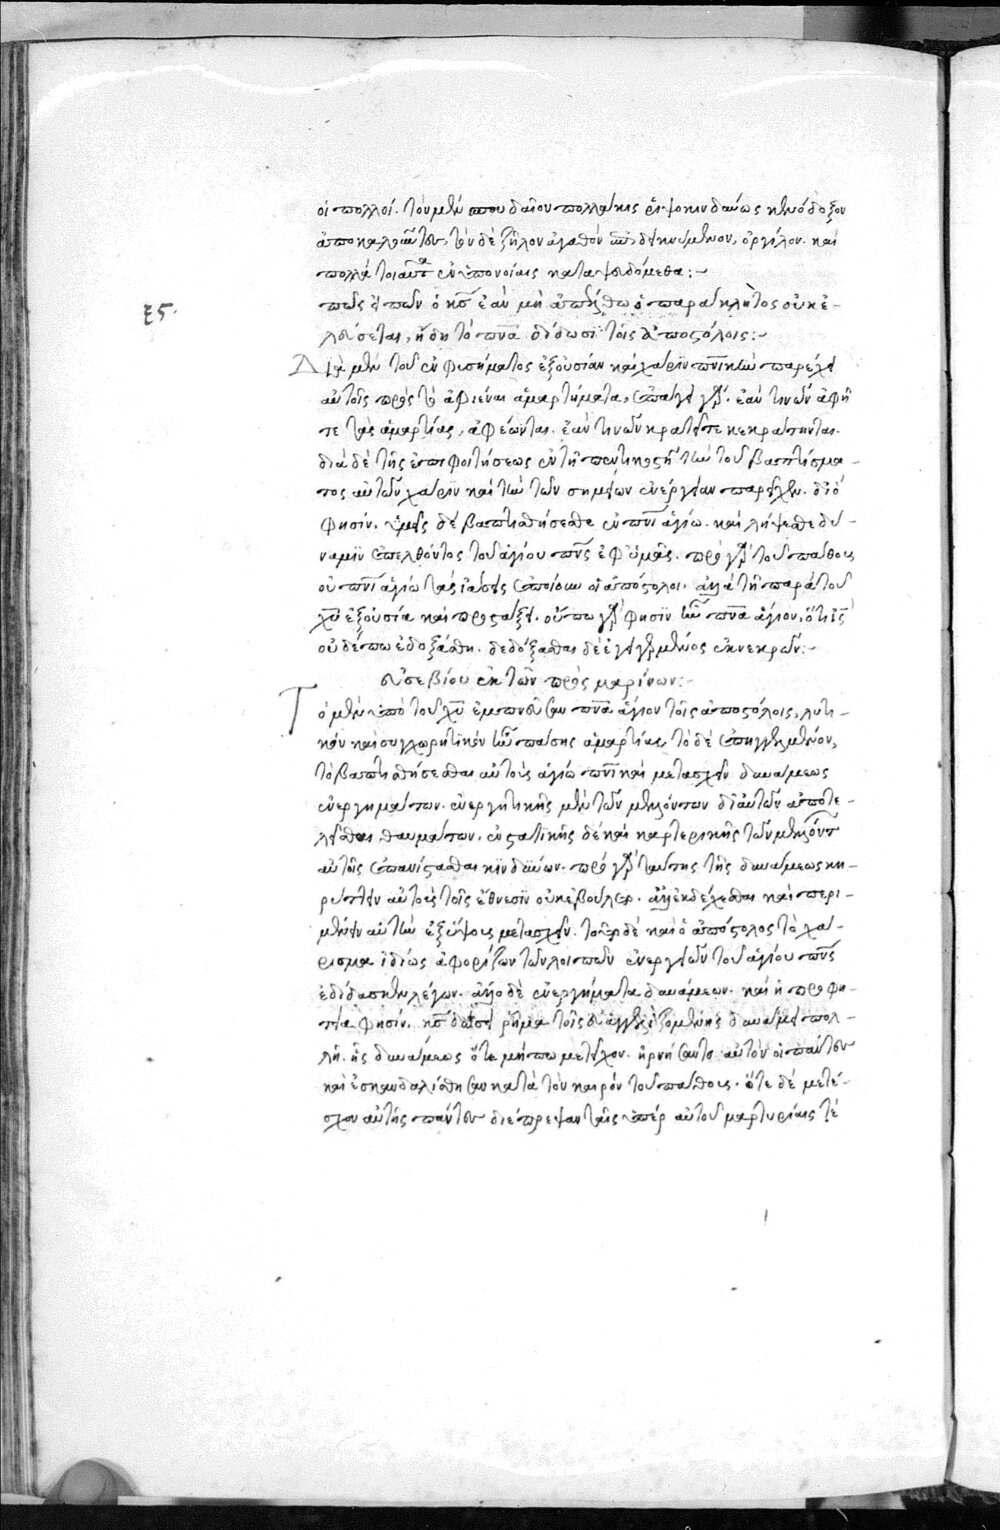 οἱ πολλοί. τὸν μὲν σπουδαῖον πολλάκις ῥιψοκινδύνως κενόδοξον
ἀποκαλοῦντες, τὸν δὲ ζῆλον ἀγαθὸν ὀργίλον. καὶ
πολλὰ τοιαῦτα ἐν ὑπονοίαις καταψευδόμεθα:~
ξς.
πῶς εἰπὼν ὁ κς̅ ἐὰν μὴ ἀπέλθω ὁ παράκλητος οὐκ ἐ-
λεύσεται, ἤδη τὸ πνα̅ δίδωσι τοῖς ἀποστόλοις:~
Διὰ μὲν τοῦ ἐμφυσήματος ἐξουσίαν καὶ χάριν πνικὴν παρέχει
αὐτοῖς πρὸς τὸ ἀφιέναι ἁμαρτήματα, ἐπάγει γάρ. ἐάν τινων ἀφῆ
τε τὰς ἁμαρτίας, ἀφέωνται. ἐάν τινων κρατῆτε κεκράτηνται.
διὰ δὲ τῆς ἐπιφοιτήσεως ἐν τῇ πεντηκοστῇ τὴν τοῦ βαπτίσμα-
τος αὐτῶν χάριν καὶ τὴν τῶν σημείων ἐνέργειαν παρεῖχεν. διό
φησίν. ὑμεῖς δὲ βαπτισθήσεσθε ἐν πνι̅ ἁγίω. καὶ λήψεσθε δύ-
ναμιν ἐπελθόντος τοῦ ἁγίου πνς̅ ἐφ' ὑμᾶς. πρὸ γὰρ τοῦ πάθους
οὐ πνι̅ ἁγίω τὰς ἰάσεις ἐποίουν οἱ ἀπόστολοι. ἀλλὰ τῇ παρὰ τοῦ
χυ̅ ἐξουσία καὶ προστάξει. οὔπω γὰρ φησὶν ἦν πνα̅ ἅγιον, ὅτι ις̅
οὐδέπω ἐδοξάσθη. δεδόξασθαι δὲ ἐγηγερμένος ἐκ νεκρῶν:~
εὐσεβίου ἐκ τῶν πρὸς μαρίνον:~
Τὸ μὲν ὑπὸ τοῦ χυ̅ ἐμπνευσθὲν πνα̅ ἅγιον τοῖς ἀποστόλοις, λυτι-
κὸν καὶ συγχωρητικὸν ἦν πάσης ἁμαρτίας. τὸ δὲ ἐπηγγελμένον,
τὸ βαπτισθήσεσθαι αὐτοὺς ἁγίω πνι̅ καὶ μετασχεῖν δυνάμεως
ἐνεργημάτων. ἐνεργητικῆς μὲν τῶν μελλόντων δι' αὐτῶν ἀποτε-
λεῖσθαι θαυμάτων. ἐνστατικῆς δὲ καὶ καρτερικῆς τῶν μελλόντων
αὐτοῖς ἐπανίστασθαι κινδύνων. πρὸ γὰρ ταύτης τῆς δυνάμεως κη-
ρύττειν αὐτοὺς τοῖς ἔθνεσιν οὐκ ἐβούλετο. ἀλλ' ἐκδέχεσθαι καὶ περι-
μένειν αὐτὴν ἐξ ὕψους μετασχεῖν. τοῦτο δὲ καὶ ὁ ἀπόστολος τὸ χά-
ρισμα ἰδίως ἀφορίζων τῶν λοιπῶν ἐνεργειῶν τοῦ ἁγίου πνς̅
ἐδίδασκεν λέγων. ἄλλο δὲ ἐνεργήματα δυνάμεων. καὶ ἡ προφη-
τεία φησίν. κς̅ δώσει ῥῆμα τοῖς εὐαγγελιζομένοις δυνάμει πολ-
λῇ. ἧς δυνάμεως ὅτε μήπω μετεῖχον. ἠρνήσαντο αὐτὸν οἱ πάντες
καὶ ἐσκανδαλίσθησαν κατὰ τὸν καιρὸν τοῦ πάθους. ὅτε δὲ μετέ-
σχον αὐτῆς πάντες διέπρεψαν ταῖς ὑπὲρ αὐτοῦ μαρτυρίαις τέ